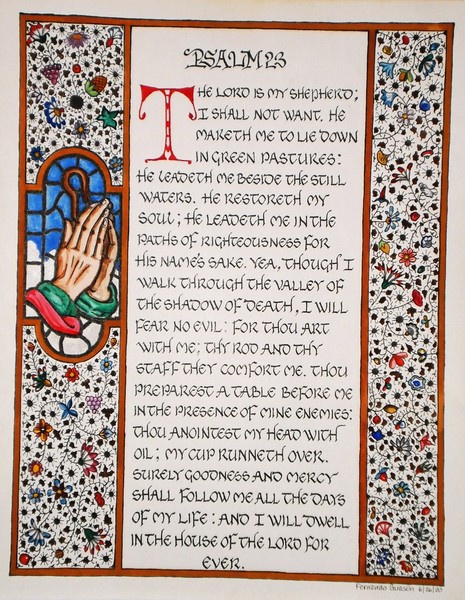 PSALM 23
THE LORD IS MY SHEPHERD;
I SHALL NOT WANT. HE
MAKETH ME TO LIE DOWN
IN GREEN PASTURES:
HE LEADETH ME BESIDE THE STILL
WATERS. HE RESTORETH MY
SOUL; HE LEADETH ME IN THE
PATHS OF RIGHTEOUSNESS FOR
HIS NAME'S SAKE. YEA, THOUGH I
WALK THROUGH THE VALLEY OF
THE SHADOW OF DEATH, I WILL
FEAR NO EVIL: FOR THOU ART
WITH ME; THY ROD AND THY
STAFF THEY COMFORT ME. THOU
PREPAREST A TABLE BEFORE ME
IN THE PRESENCE OF MINE ENEMIES:
THOU ANOINTEST MY HEAD WITH
OIL; MY CUP RUNNETH OVER.
SURELY GOODNESS AND MERCY
SHALL FOLLOW ME ALL THE DAYS
OF MY LIFE: AND I WILL DWELL
IN THE HOUSE OF THE LORD FOR
EVER.